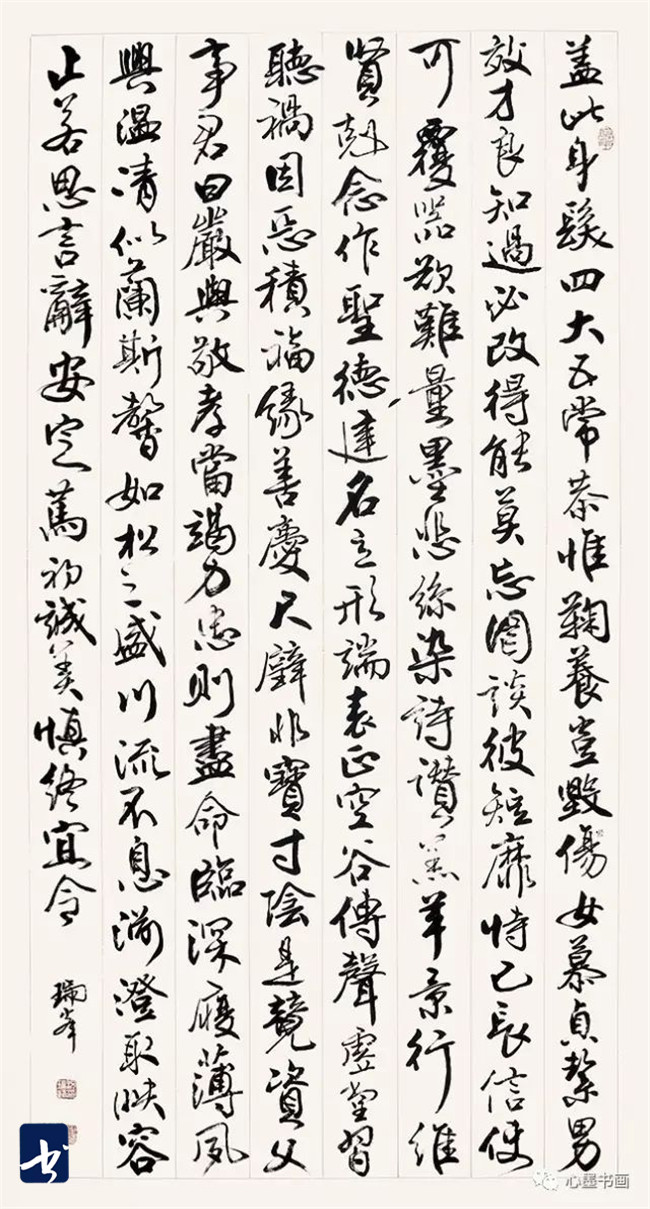 盖此身髮四大五常恭惟鞠養豈毀傷女慕貞絜男
效才良知過必改得能莫忘罔談彼短靡恃己長信使
可覆器欲難量墨悲絲染詩讚羔羊景行維
賢剋念作聖德建名立形端表正空谷傳聲虛堂習
聽禍因惡積福緣善慶尺璧非寶寸陰是競資父
事君曰嚴與敬孝當竭力忠則盡命臨深履薄夙
興溫清似蘭斯馨如松之盛川流不息淵澄取映容
止若思言辭安定篤初誠美慎終宜令
瑞峯
书
心墨书画